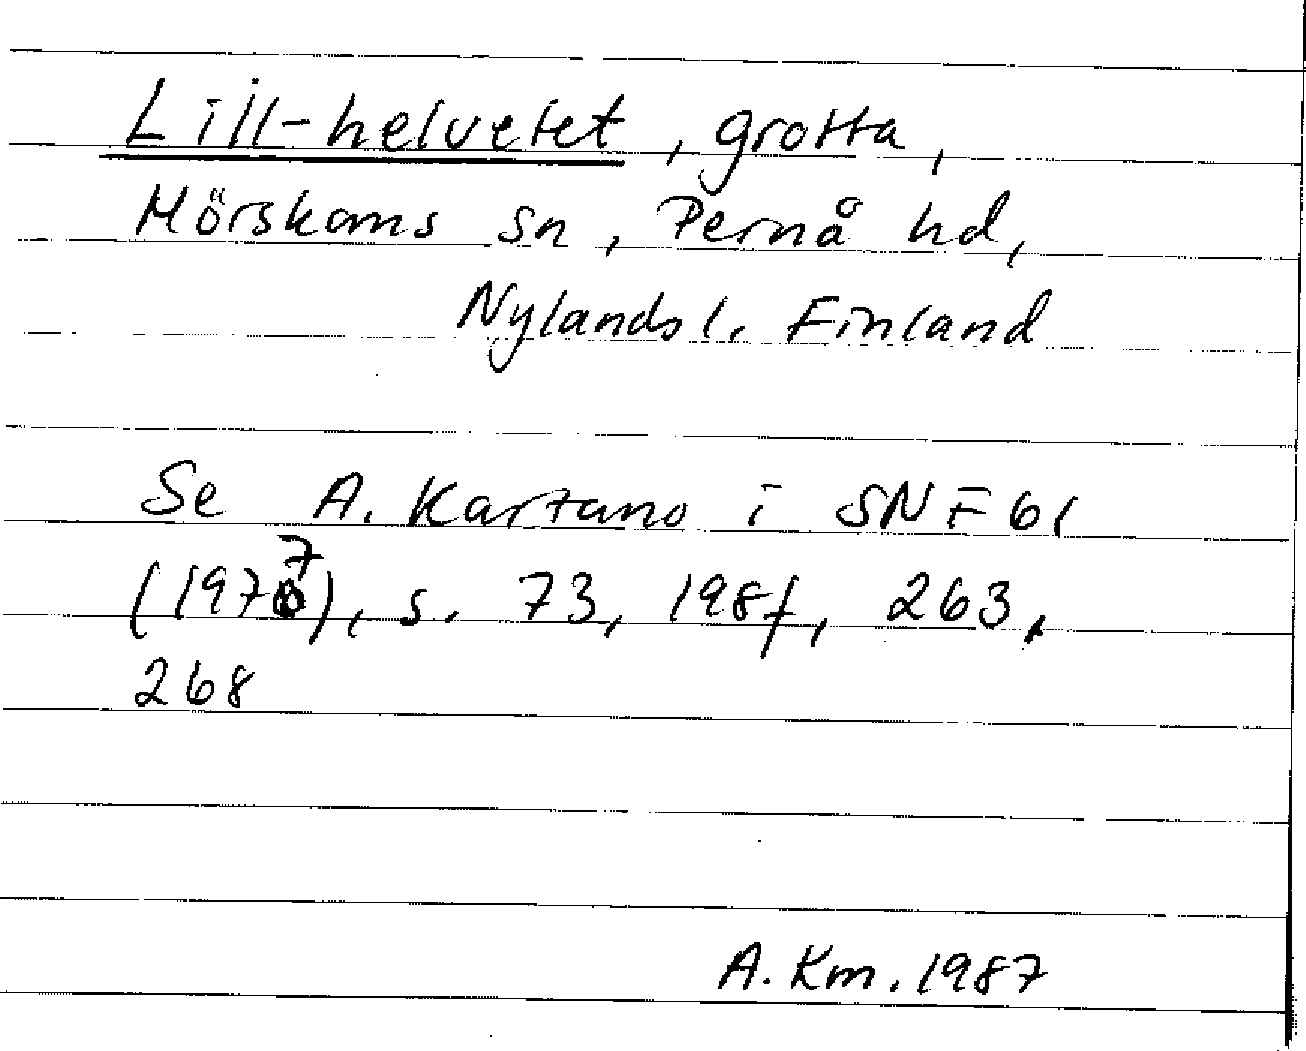 Lill-helvetet, grotta,
Mörskoms sn, Pernå hd,
Nylands l. Finland
Se A. Karsano i SNF 61
(1977), s. 73, 198f, 263,
268
A. Km. 1987